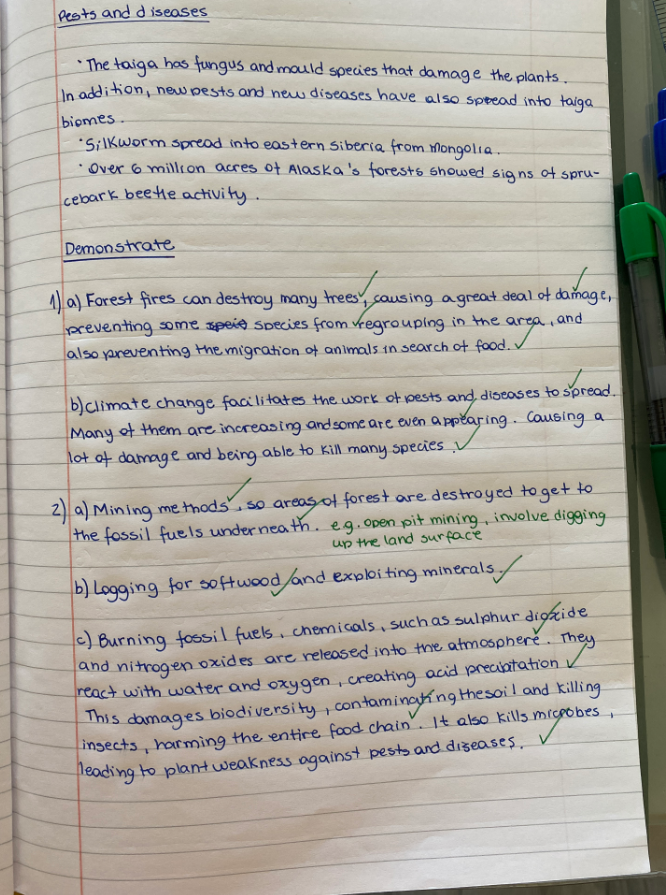 Pests and diseases
· The taiga has fungus and mould species that damage the plants.
In addition, new pests and new diseases have also spread into taiga
biomes.
· Silkworm spread into eastern Siberia from Mongolia.
· Over 6 million acres of Alaska's forests showed signs of spru-
cebark beetle activity.
Demonstrate
1) a) Forest fires can destroy many trees, causing a great deal of damage,
preventing some species from regrouping in the area, and
also preventing the migration of animals in search of food.
b) Climate change facilitates the work of pests and diseases to spread.
Many of them are increasing and some are even appearing. Causing a
lot of damage and being able to kill many species.
2) a) Mining methods, so areas of forest are destroyed to get to
the fossil fuels underneath. e.g. open pit mining, involve digging
up the land surface
b) Logging for softwood and exploiting minerals.
c) Burning fossil fuels, chemicals, such as sulphur dioxide
and nitrogen oxides are released into the atmosphere. They
react with water and oxygen, creating acid precipitation
This damages biodiversity, contaminating the soil and killing
insects, harming the entire food chain. It also kills microbes,
leading to plant weakness against pests and diseases.